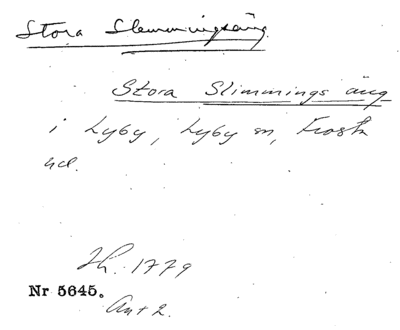 Stora Slemmingsäng.
Stora Slimmings äng
i Lyby, Lyby sn, Frosta
hd.
Jh. 1779
Nr 5645.
Ant 2.